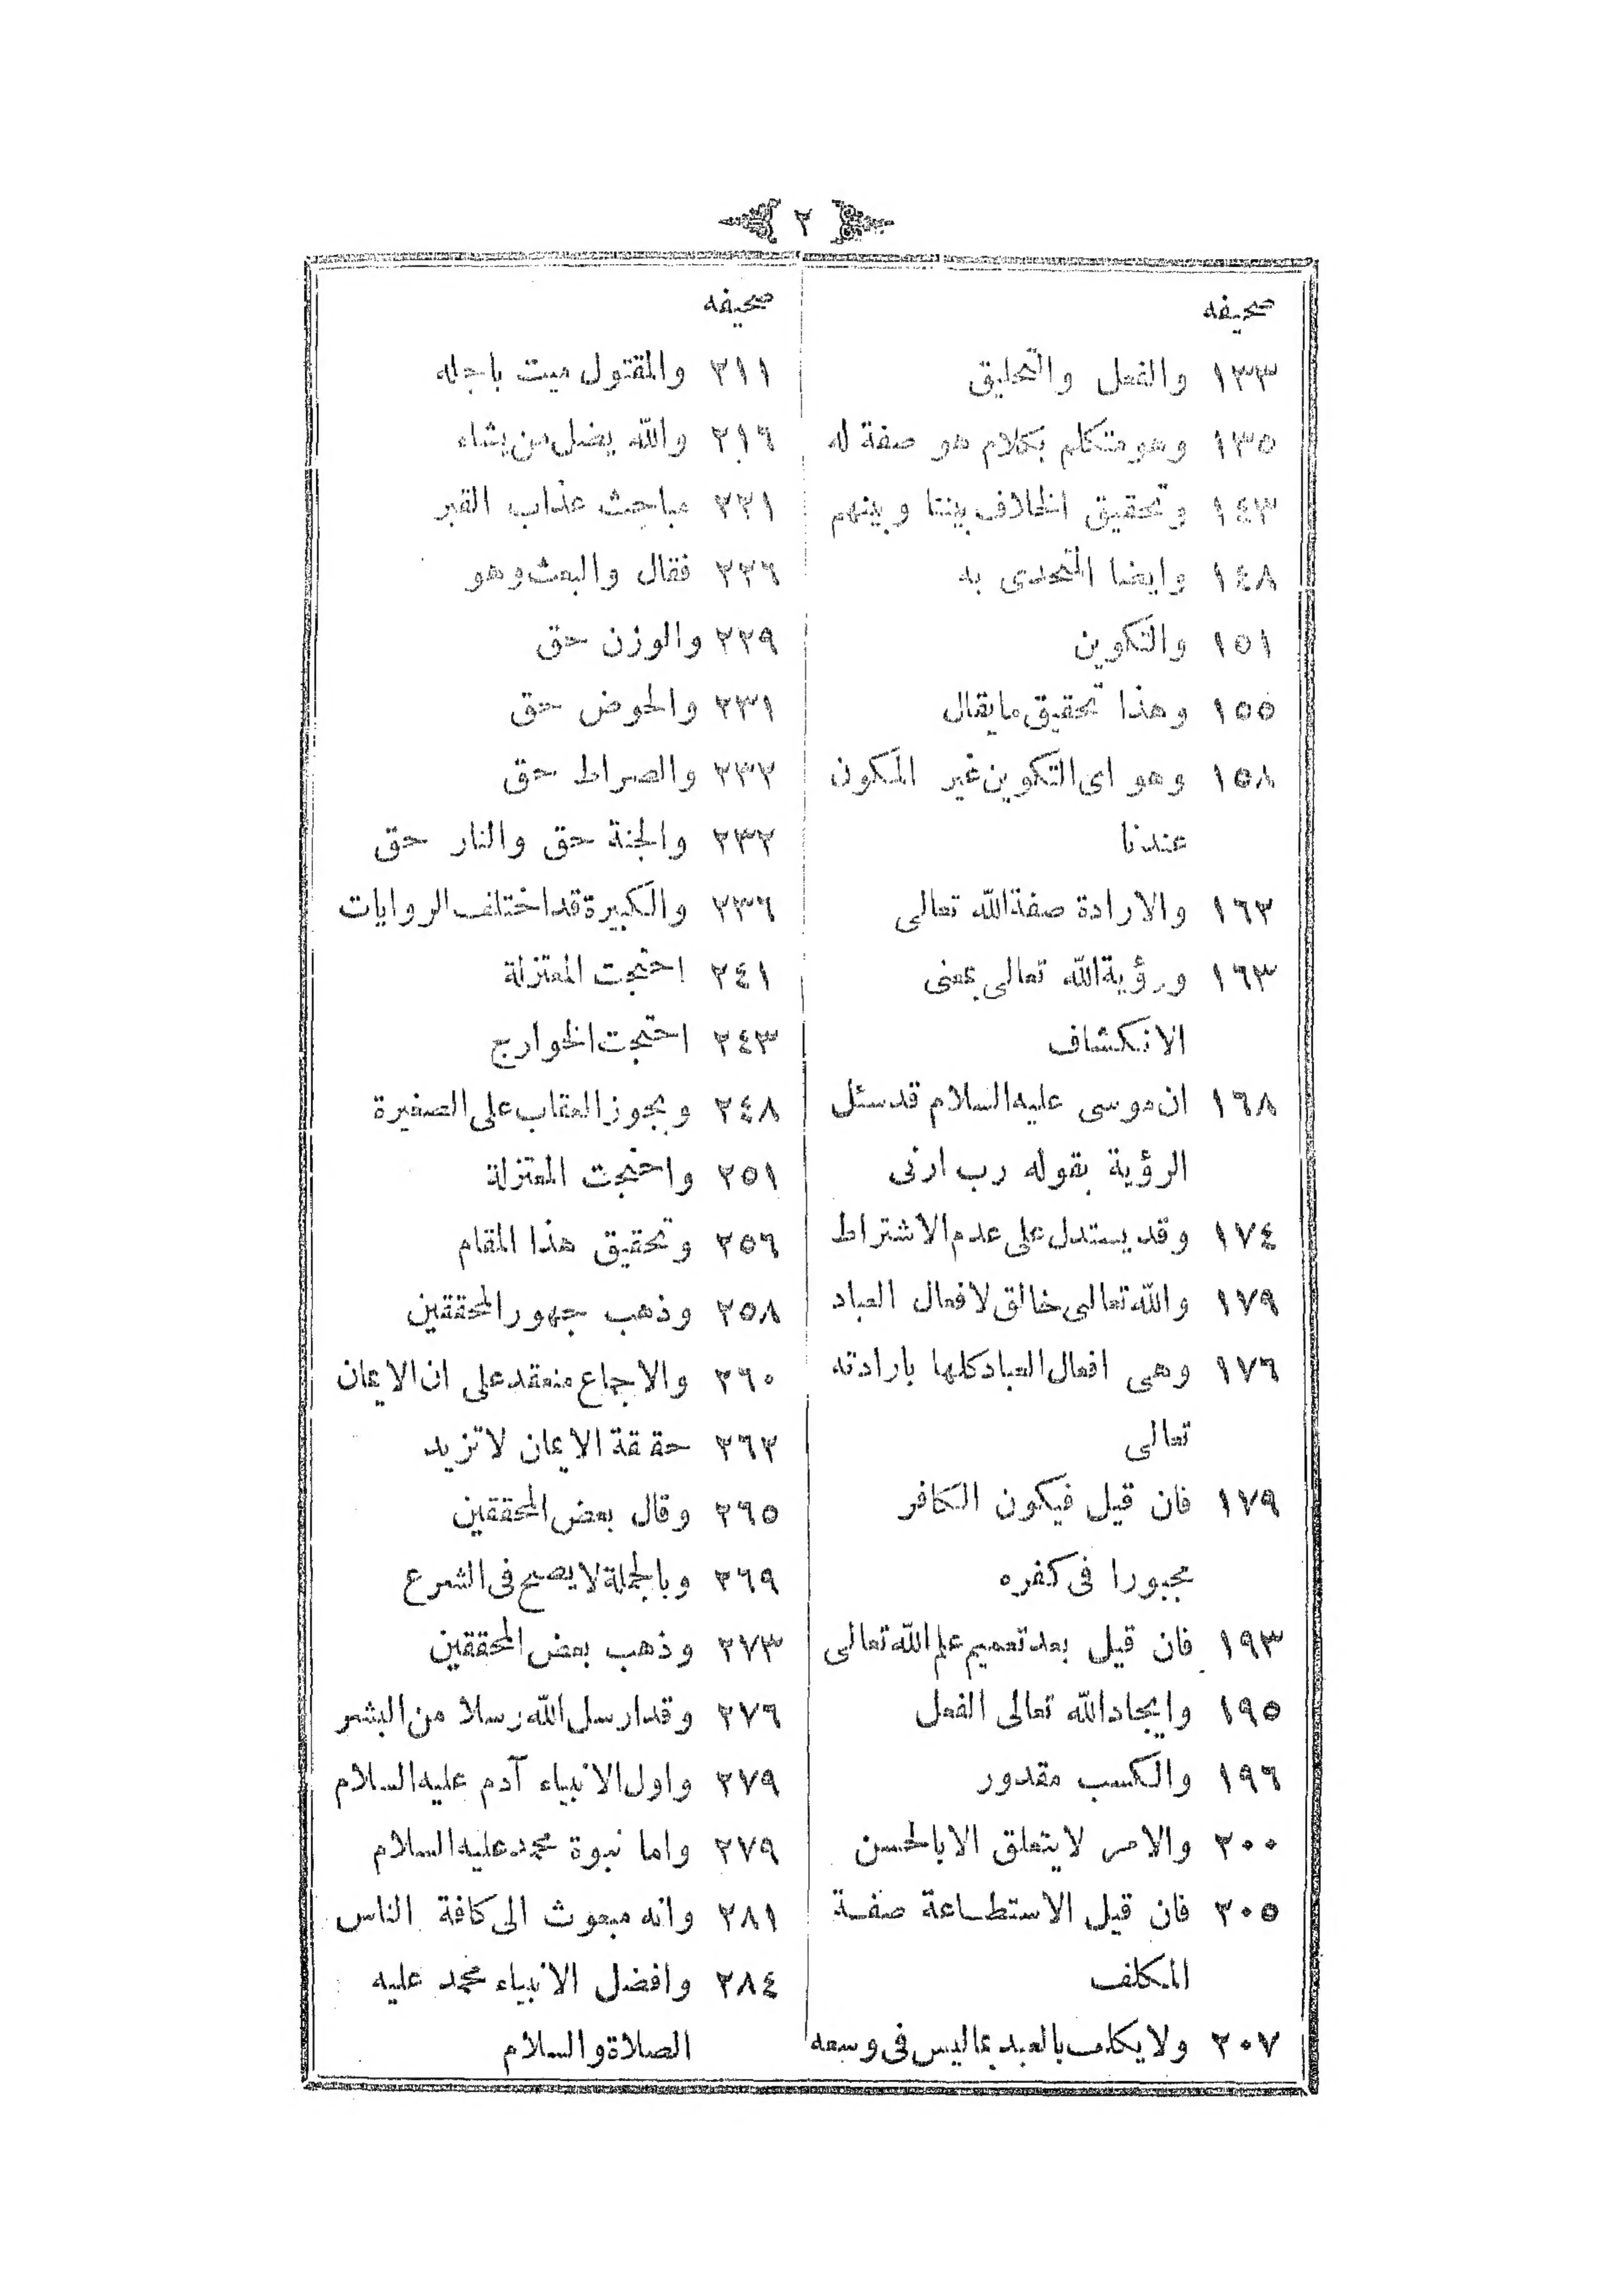 ٢
صحيفه
١٣٣ والفعل والتخليق
١٣٥ وهو متكلم بكلام هو صفة له
١٤٣ وتحقيق الخلاف بيننا وبينهم
١٤٨ وايضا المتحدى به
١٥١ والتكوين
١٥٥ وهذا تحقيق مايقال
١٥٨ وهو اى التكوين غير المكون
عندنا
١٦٣ والارادة صفة الله تعالى
١٦٣ ورؤية الله تعالى بمعنى
الانكشاف
١٦٨ ان موسى عليه السلام قد سئل
الرؤية بقوله رب ارنى
١٧٤ وقد يستدل على عدم الاشتراط
١٧٩ والله تعالى خالق لافعال العباد
١٧٦ وهى افعال العباد كلها بارادته
تعالى
١٧٩ فان قيل فيكون الكافر
مجبورا فى كفره
١٩٣ فان قيل بعد تعميم علم الله تعالى
١٩٥ وايجاد الله تعالى الفعل
١٩٦ والكسب مقدور
٢٠٠ والامر لا يتعلق الا بالحسن
٢٠٥ فان قيل الاستطاعة صفة
المكلف
٢٠٧ ولا يكلف بالعبد بماليس فى وسعه
صحيفه
٢١١ والمقتول ميت باجله
٢١٦ والله يضل من يشاء
٢٢١ مباحث عذاب القبر
٢٢٦ فقال والبعث وهو
٢٢٩ والوزن حق
٢٣١ والحوض حق
٢٣٢ والصراط حق
٢٣٢ والجنة حق والنار حق
٢٣٦ والكبيرة قد اختلف الروايات
٢٤١ احتجت المعتزلة
٢٤٣ احتجت الخوارج
٢٤٨ ويجوز العقاب على الصغيرة
٢٥١ واحتجت المعتزلة
٢٥٦ وتحقيق هذا المقام
٢٥٨ وذهب جمهور المحققين
٢٦٠ والاجماع منعقد على ان الايمان
٢٦٢ حققة الايمان لا تزيد
٢٦٥ وقال بعض المحققين
٢٦٩ وبالجملة لا يصح فى الشرع
٢٧٣ وذهب بعض المحققين
٢٧٦ وقد ارسل الله رسلا من البشر
٢٧٩ واول الانبياء آدم عليه السلام
٢٧٩ واما نبوة محمد عليه السلام
٢٨١ وانه مبعوث الى كافة الناس
٢٨٤ وافضل الانبياء محمد عليه
الصلاة والسلام